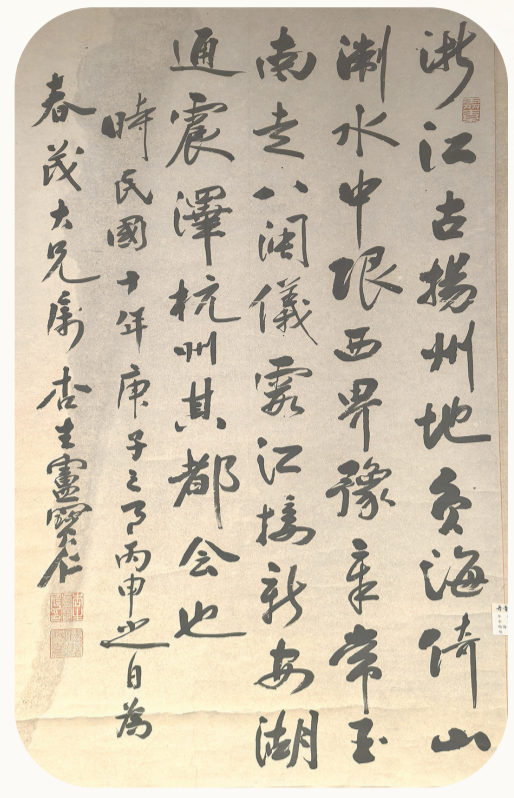 浙江古揚州地負海倚山
淛水中限西界豫章常玉
南走八閩儀霞江接新安湖
通震澤杭州其都会也
時民國十年庚子之月丙申之日為
春茂大兄属 杏生盧寶仁